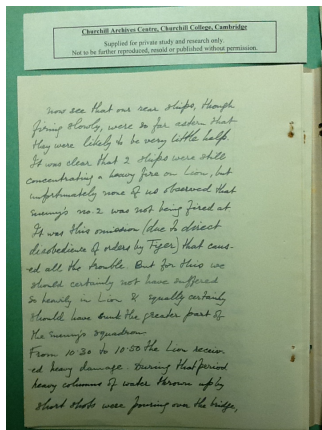 Churchill Archives Centre, Churchill College, Cambridge
Supplied for private study and research only.
Not to be further reproduced, resold or published without permission.
now see that our rear ships, though
firing slowly, were so far astern that
they were likely to be very little help.
It was clear that 2 ships were still
concentrating a heavy fire on Lion, but
unfortunately none of us observed that
enemy's no. 2 was not being fired at
It was this omission (due to direct
disobedience of orders by Tiger) that caus-
ed all the trouble. But for this we
should certainly not have suffered
so heavily in Lion & equally certainly
should have sunk the greater part of
the enemy's squadron
From 10.30 to 10.50 the Lion receiv-
ed heavy damage. During that period
heavy columns of water thrown up by
short shots were pouring over the bridge,